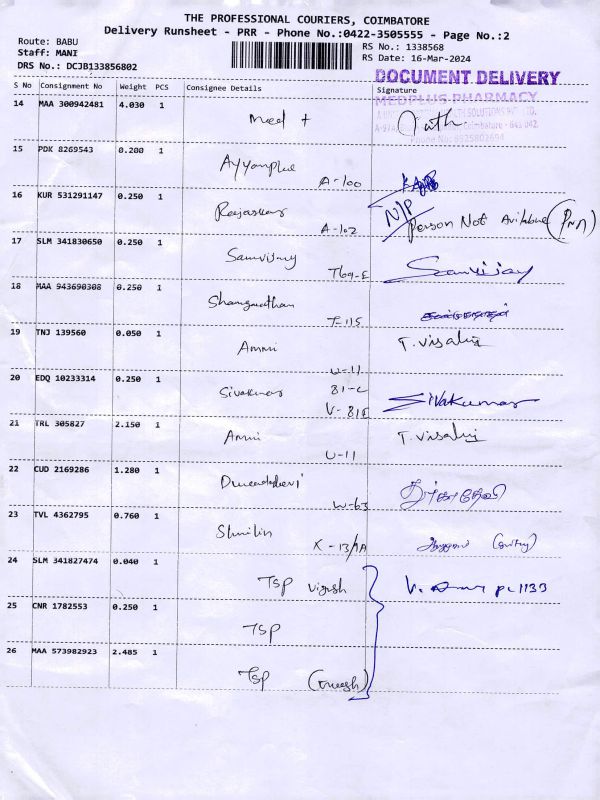 THE PROFESSIONAL COURIERS, COIMBATORE
Delivery Runsheet - PRR - Phone No.:0422-3505555 - Page No.:2
Route: BABU
Staff: MANI
DRS No.: DCJB133856802
RS No.: 1338568
RS Date: 16-Mar-2024
DOCUMENT DELIVERY
S No Consignment No Weight PCS Consignee Details Signature
MEDPLUS PHARMACY
14 MAA 300942481 4.030 1 Med +
HEALTH SOLUTIONS PVT LTD.
Coimbatore - 641 042.
15 PDK 8269543 0.200 1
A-100
16 KUR 531291147 0.250 1 Rajasekar
A-102
N/P
Person Not Avilable (PNA)
17 SLM 341830650 0.250 1 Samvijay
T69-E
Samvijay
18 MAA 943690308 0.250 1
T-115
19 TNJ 139560 0.050 1 Ammi T. Visalij
U-11
20 EDQ 10233314 0.250 1 Sivakumar 81-C
V-81E
Sivakumar
21 TRL 305827 2.150 1 Ammi T. Visalij
U-11
22 CUD 2169286 1.280 1
W-63
23 TVL 4362795 0.760 1
X-13/1A
24 SLM 341827474 0.040 1 TSP Vignesh V. PC 1133
25 CNR 1782553 0.250 1 TSP
26 MAA 573982923 2.485 1 TSP